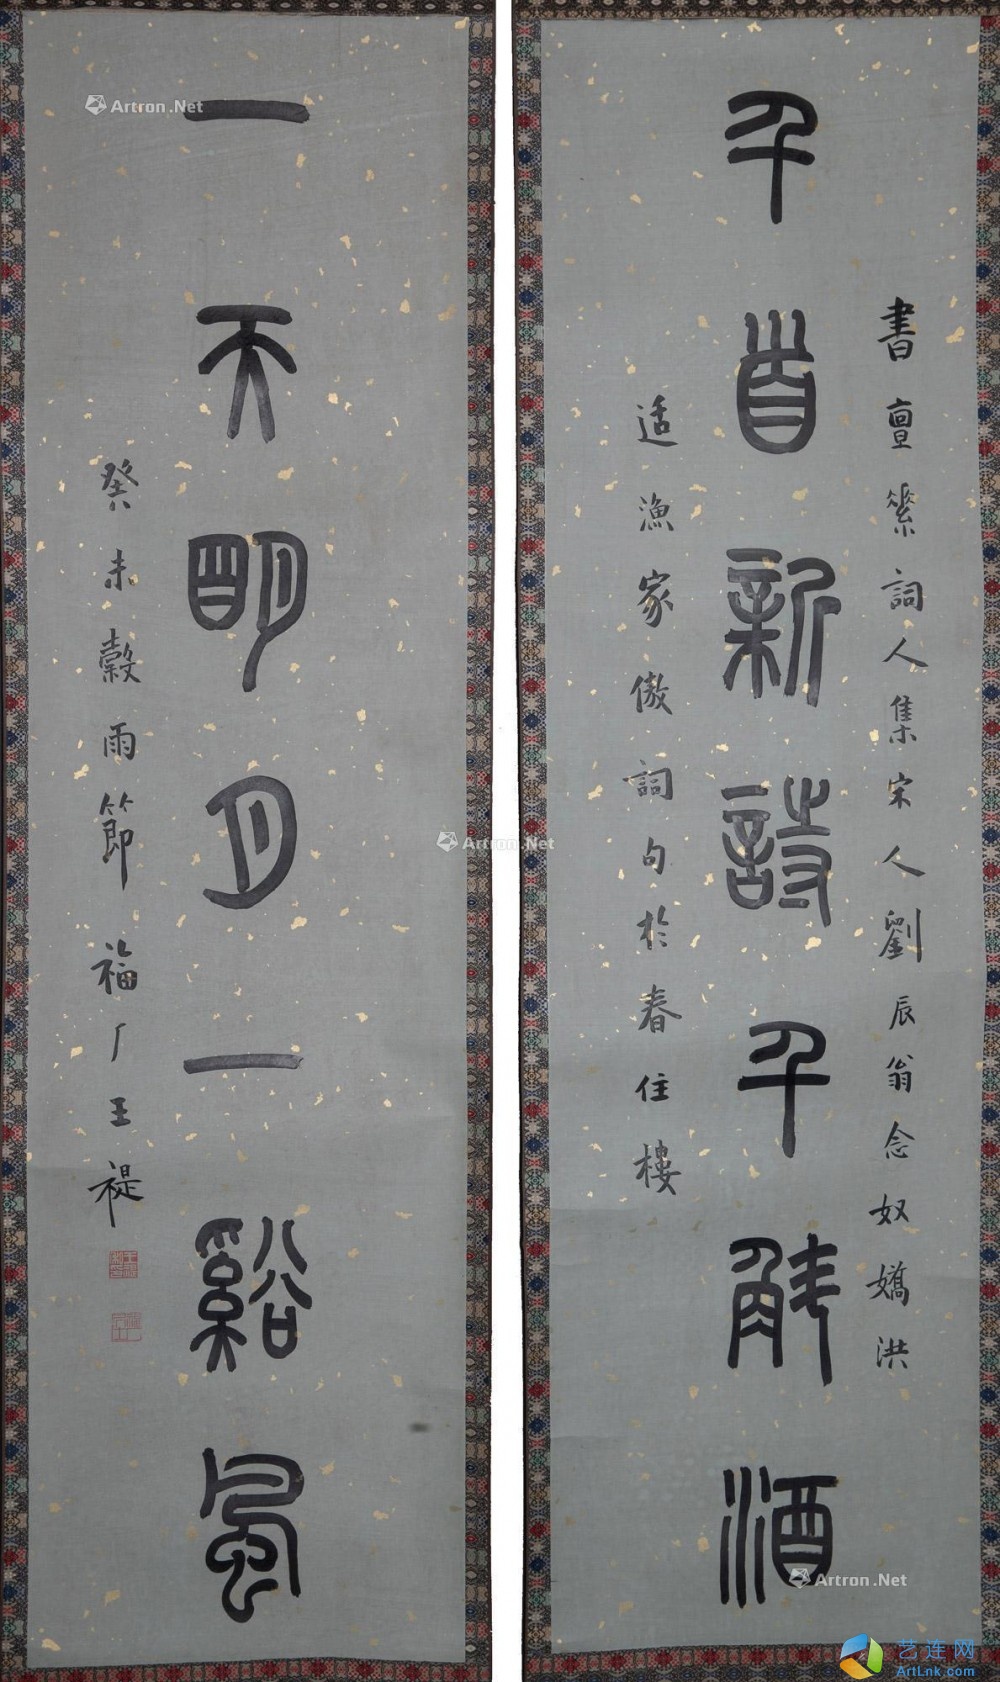 書亶素詞人集宋人劉辰翁念奴嬌洪
千首新詩千斛酒
适漁家傲詞句於春住樓
一天明月一谿風
癸未穀雨節福厂王禔
Artron.Net
Artron.Net
Artron.Net
艺连网
ArtLnk.com